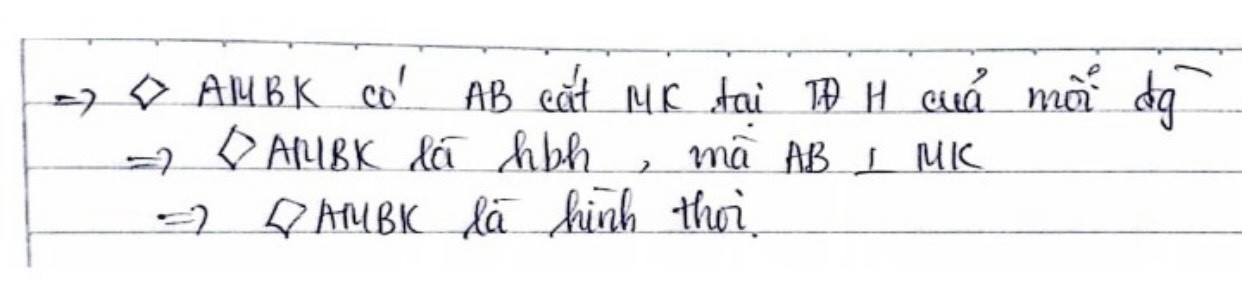 => ◇ AMBK có AB cắt MK tại TĐ H của mỗi đg
=> ◇ AMBK là hbh, mà AB ⊥ MK
=> ◇ AMBK là hình thoi.